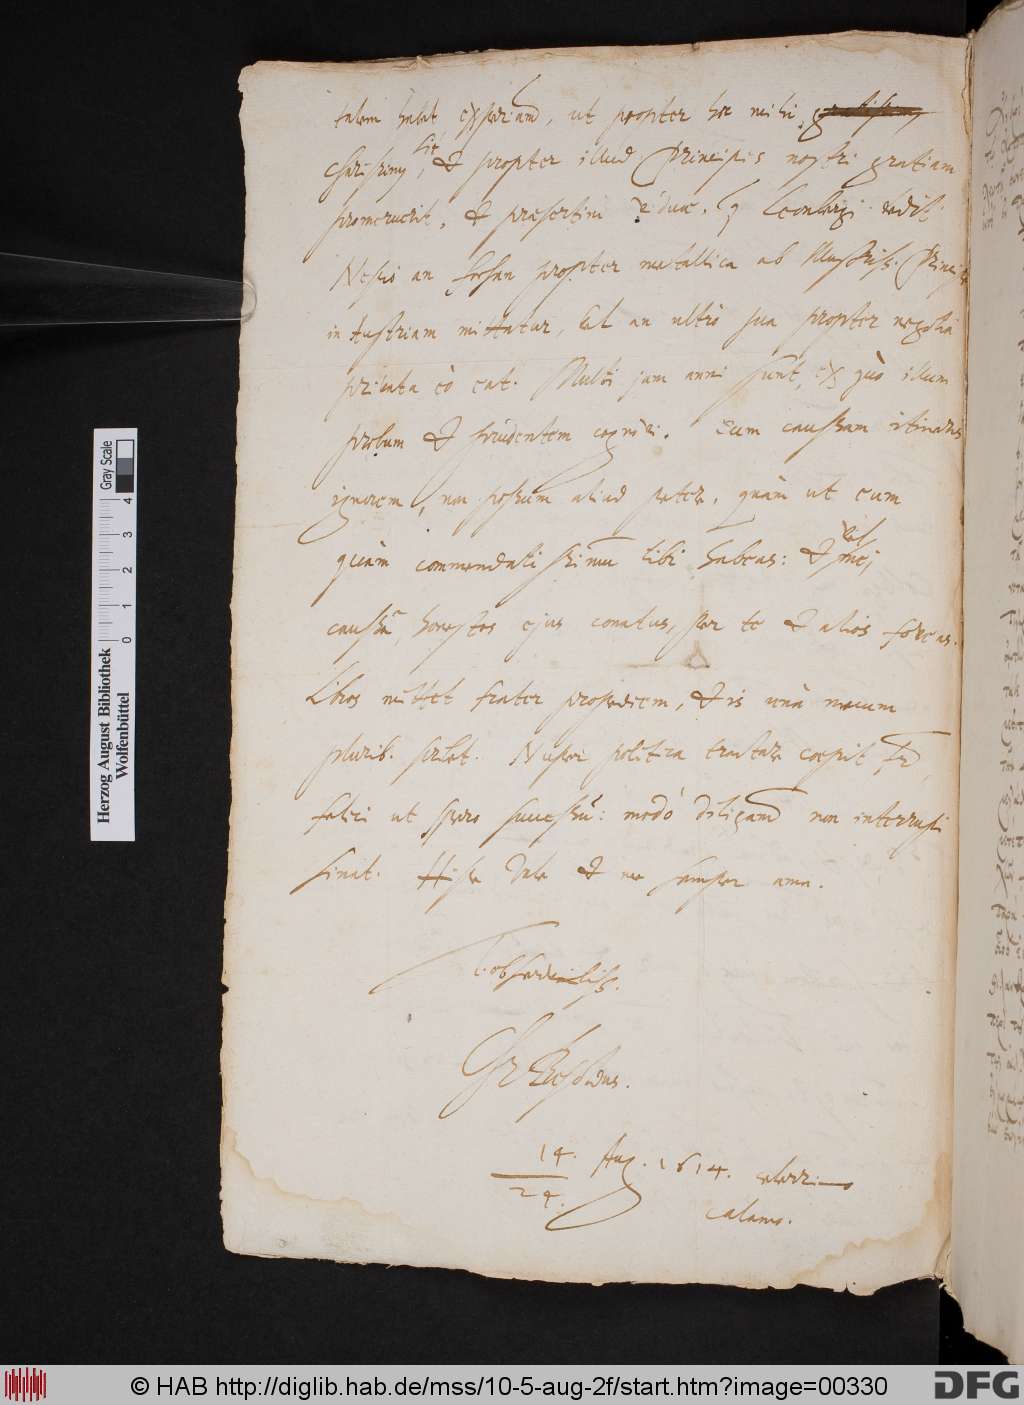 talem habet experiam, ut propter hoc mihi gratissimus
charissimus sit, & propter illud Principis nostri gratiam
promeruerit, & praesertim Leonbergi
Nescio an forsan propter metallica ab Illustriss. Principe
in Austriam mittatur, vel an ultrò sua propter negotia
privata eò eat. Multi jam anni sunt, ex quo illum
probum & prudentem cognovi. Cum caussam itineris
ignorem, non possum aliud petere, quàm ut eum
quàm commendatissimum tibi habeas: & vel mei
caussa, honestos ejus conatus, per te & alios foveas.
Libros mittet frater propediem, & is unà mecum
plurib. scribet. Nuper politica tractare coepit
felici ut spero successu: modò diligam non interrupi
sinat. Hisce Vale & me semper ama.
T. observantiss.
Chr Besoldus.
14. Aug. 1614. celerrimo
24.
calamo.
Herzog August Bibliothek
Wolfenbüttel
0 1 2 3 4
Gray Scale
© HAB http://diglib.hab.de/mss/10-5-aug-2f/start.htm?image=00330
DFG